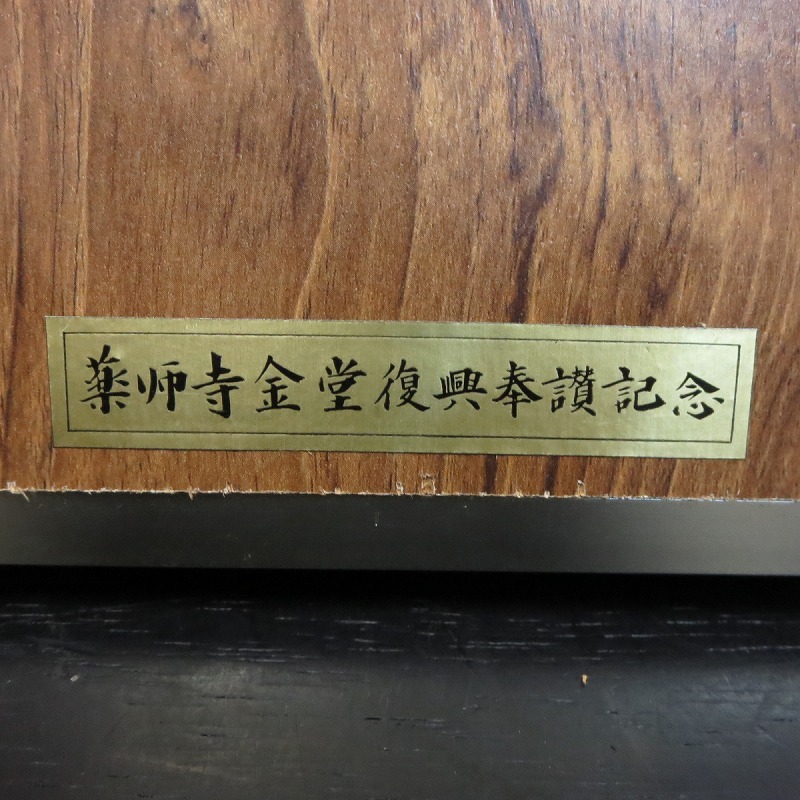 薬師寺金堂復興奉讃記念